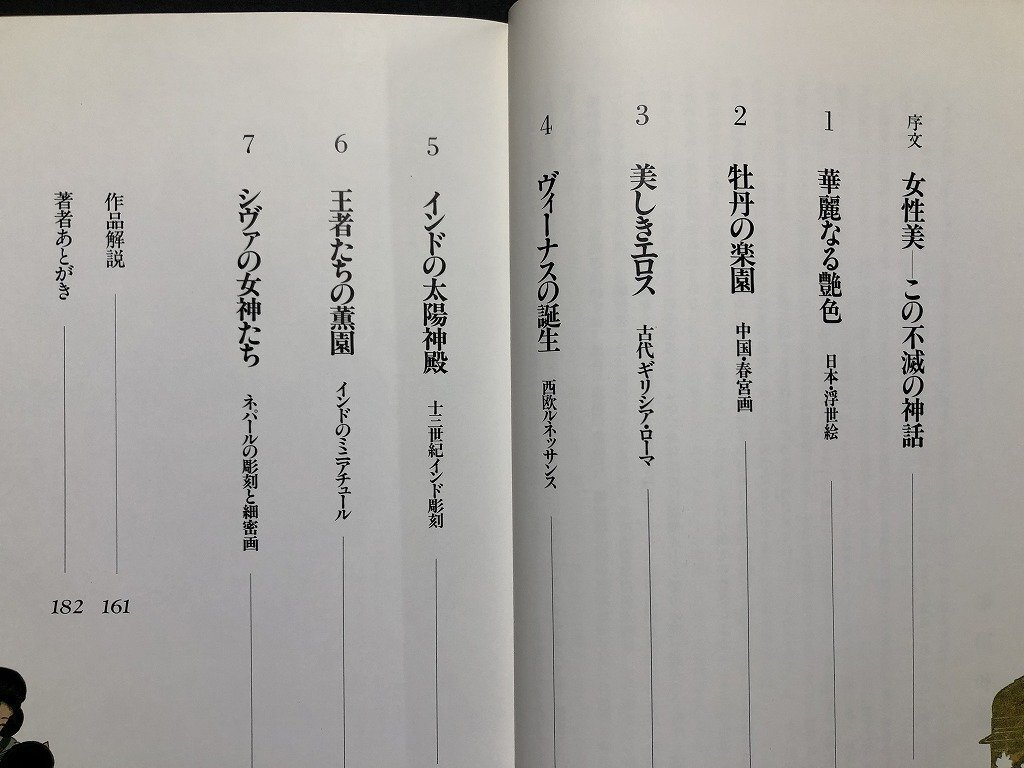 序文 女性美―この不滅の神話
1 華麗なる艶色 日本・浮世絵
2 牡丹の楽園 中国・春宮画
3 美しきエロス 古代ギリシア・ローマ
4 ヴィーナスの誕生 西欧ルネッサンス
5 インドの太陽神殿 十三世紀インド彫刻
6 王者たちの薫園 インドのミニアチュール
7 シヴァの女神たち ネパールの彫刻と細密画
作品解説 161
著者あとがき 182